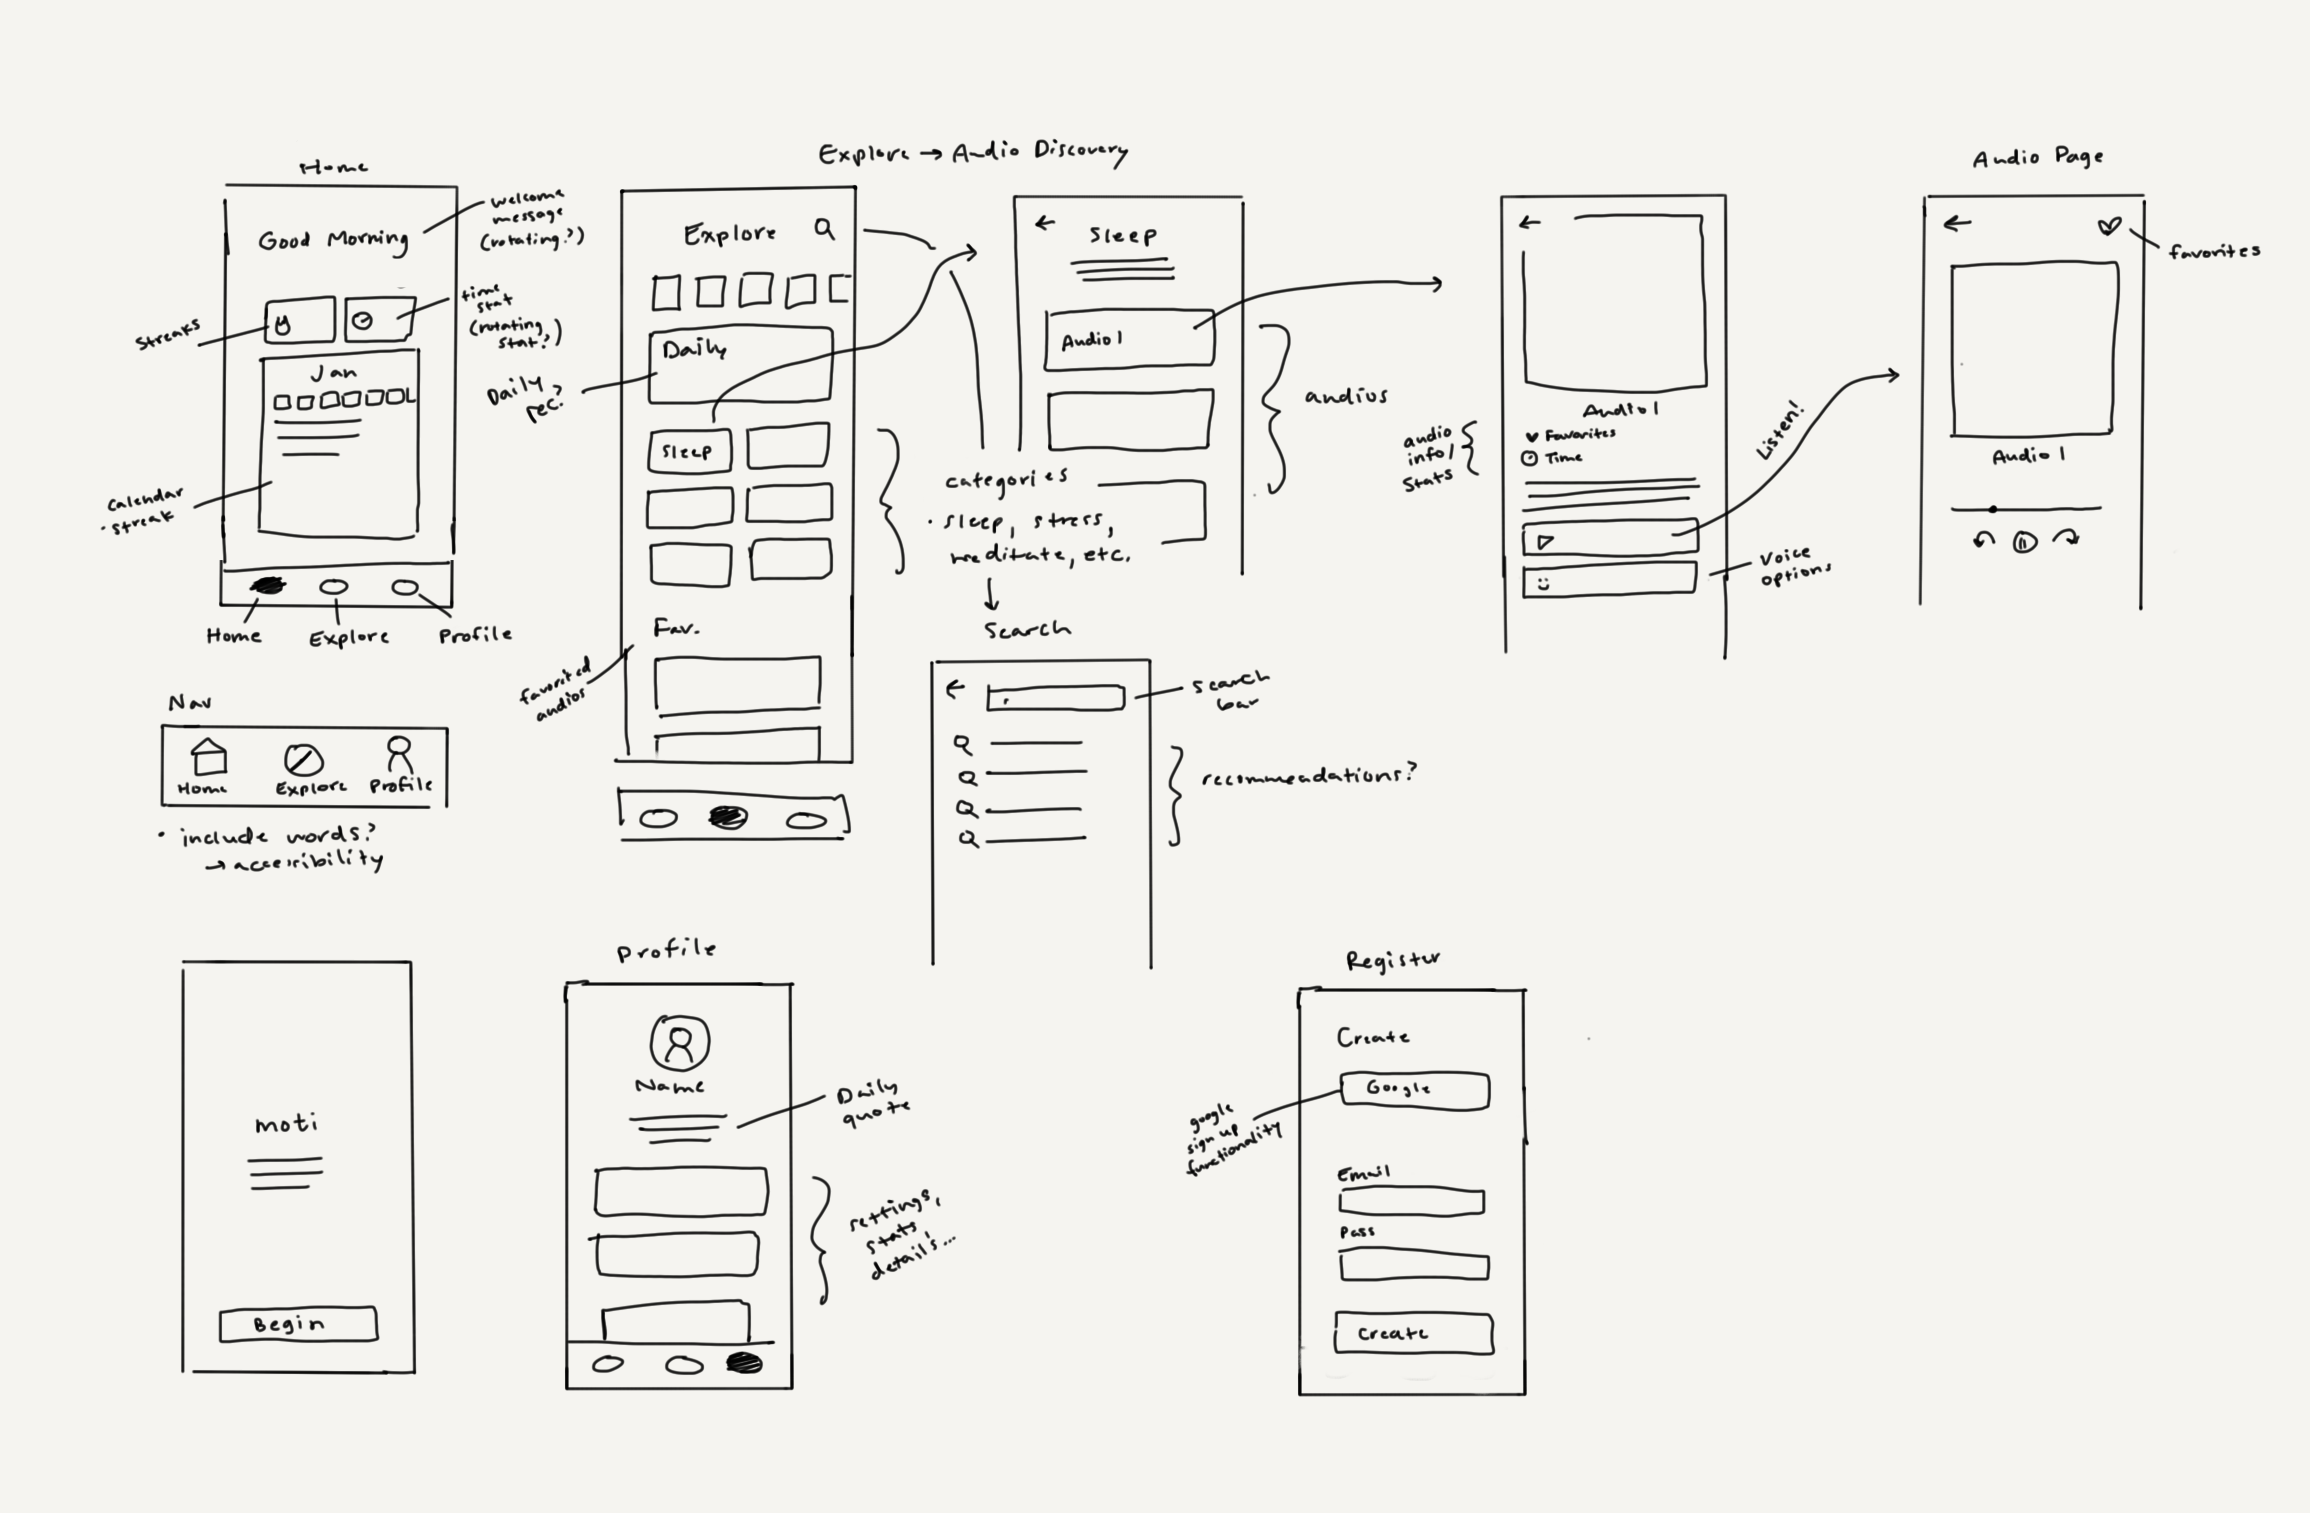 Home
Good Morning
welcome
message
(rotating?)
Streaks
time
stat
(rotating
stat?)
Jan
Calendar
· streak
Home
Explore
Profile
Nav
Home
Explore
Profile
· include words?
→ accessibility
Explore → Audio Discovery
Explore
Daily
Daily
rec?
Sleep
Fav.
favorited
audios
categories
· sleep, stress,
meditate, etc.
Sleep
Audio 1
audios
Search
search
bar
recommendations?
Audio 1
Favorites
Time
audio
info/
stats
Listen!
Voice
options
Audio Page
favorites
Audio 1
moti
Begin
Profile
Name
Daily
quote
settings,
stats,
details...
Register
Create
Google
google
sign up
functionality
Email
Pass
Create